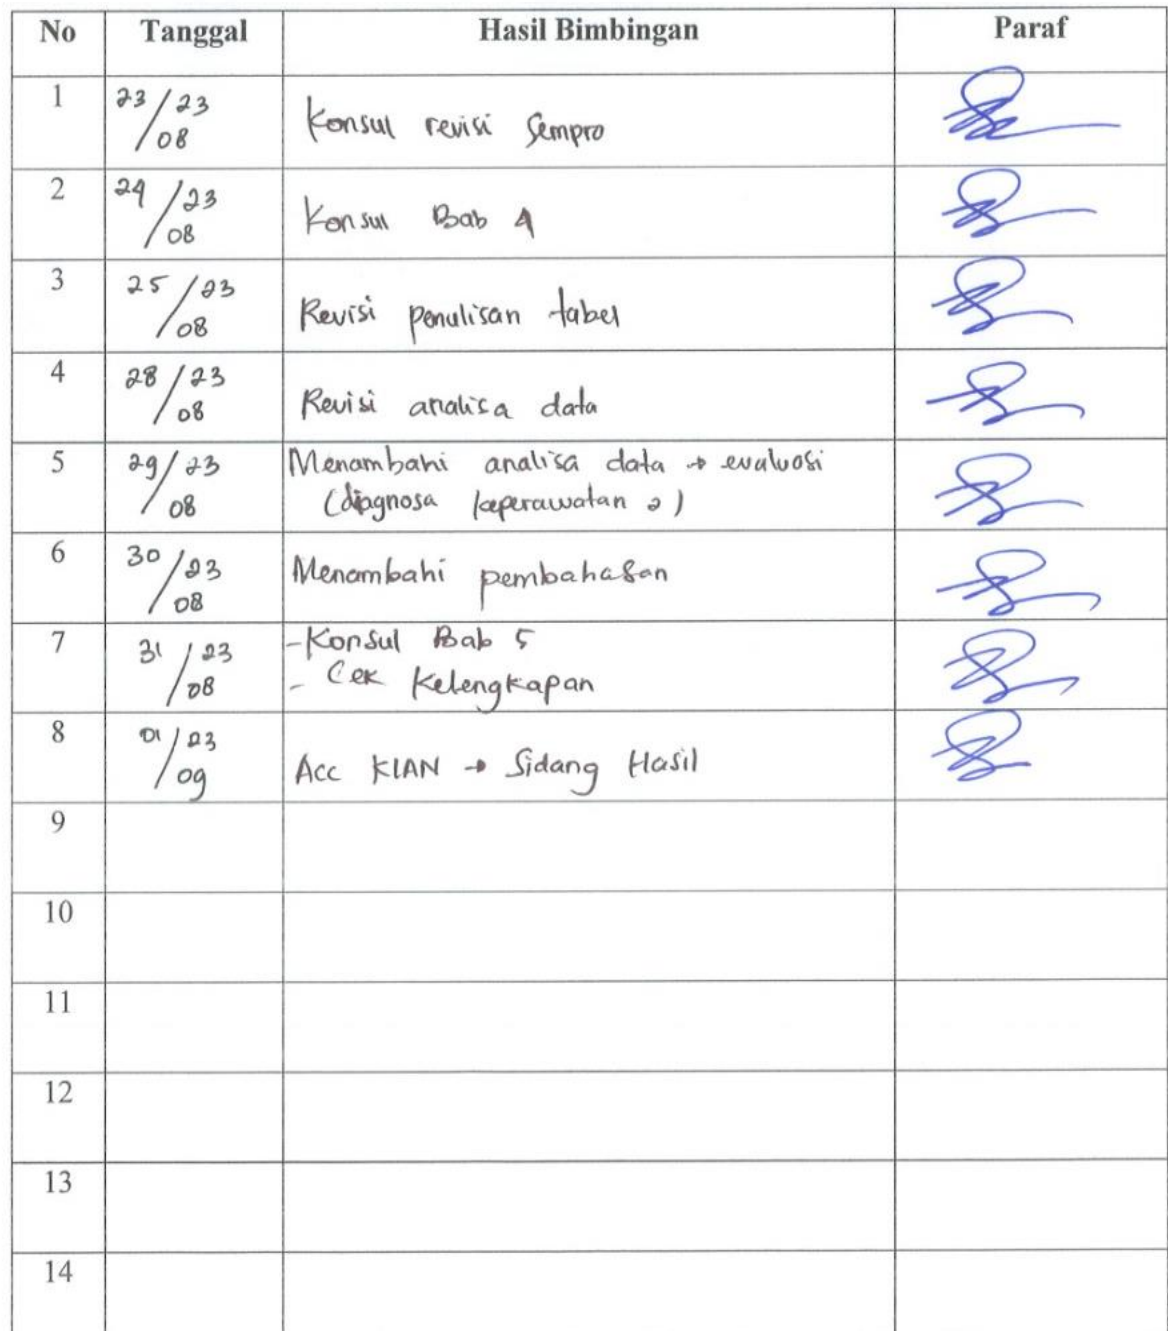 No Tanggal Hasil Bimbingan Paraf
1 23/08 23 Konsul revisi Sempro
2 24/08 23 Konsul Bab 4
3 25/08 23 Revisi penulisan tabel
4 28/08 23 Revisi analisa data
5 29/08 23 Menambahi analisa data → evaluosi
(diagnosa keperawatan 2)
6 30/08 23 Menambahi pembahasan
7 31/08 23 - Konsul Bab 5
- Cek Kelengkapan
8 01/09 23 Acc KIAN → Sidang Hasil
9
10
11
12
13
14